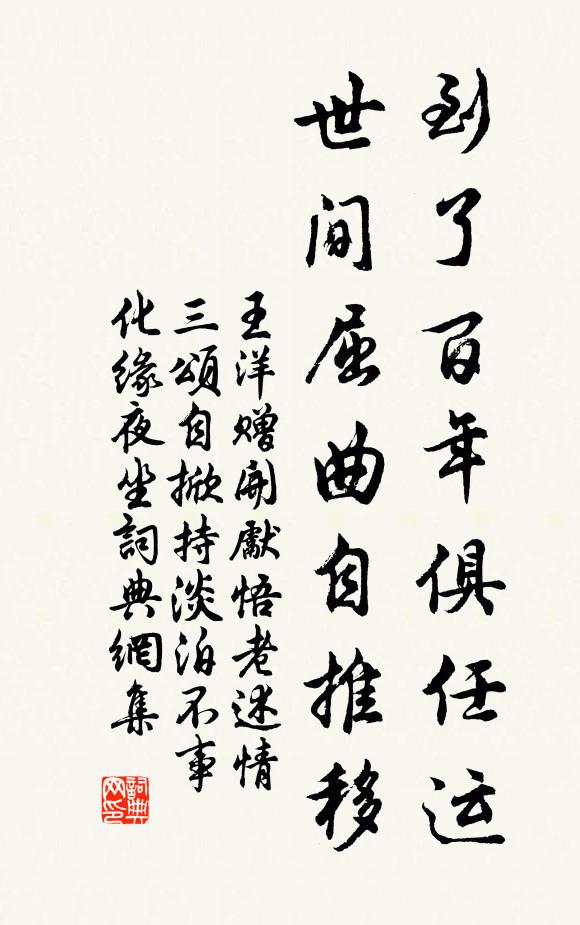 到了百年俱任运
世间屈曲自推移
王洋赠闻獻悟老述情
三頌自掀持淡泊不事
化缘夜坐詞典網集
詞典网印